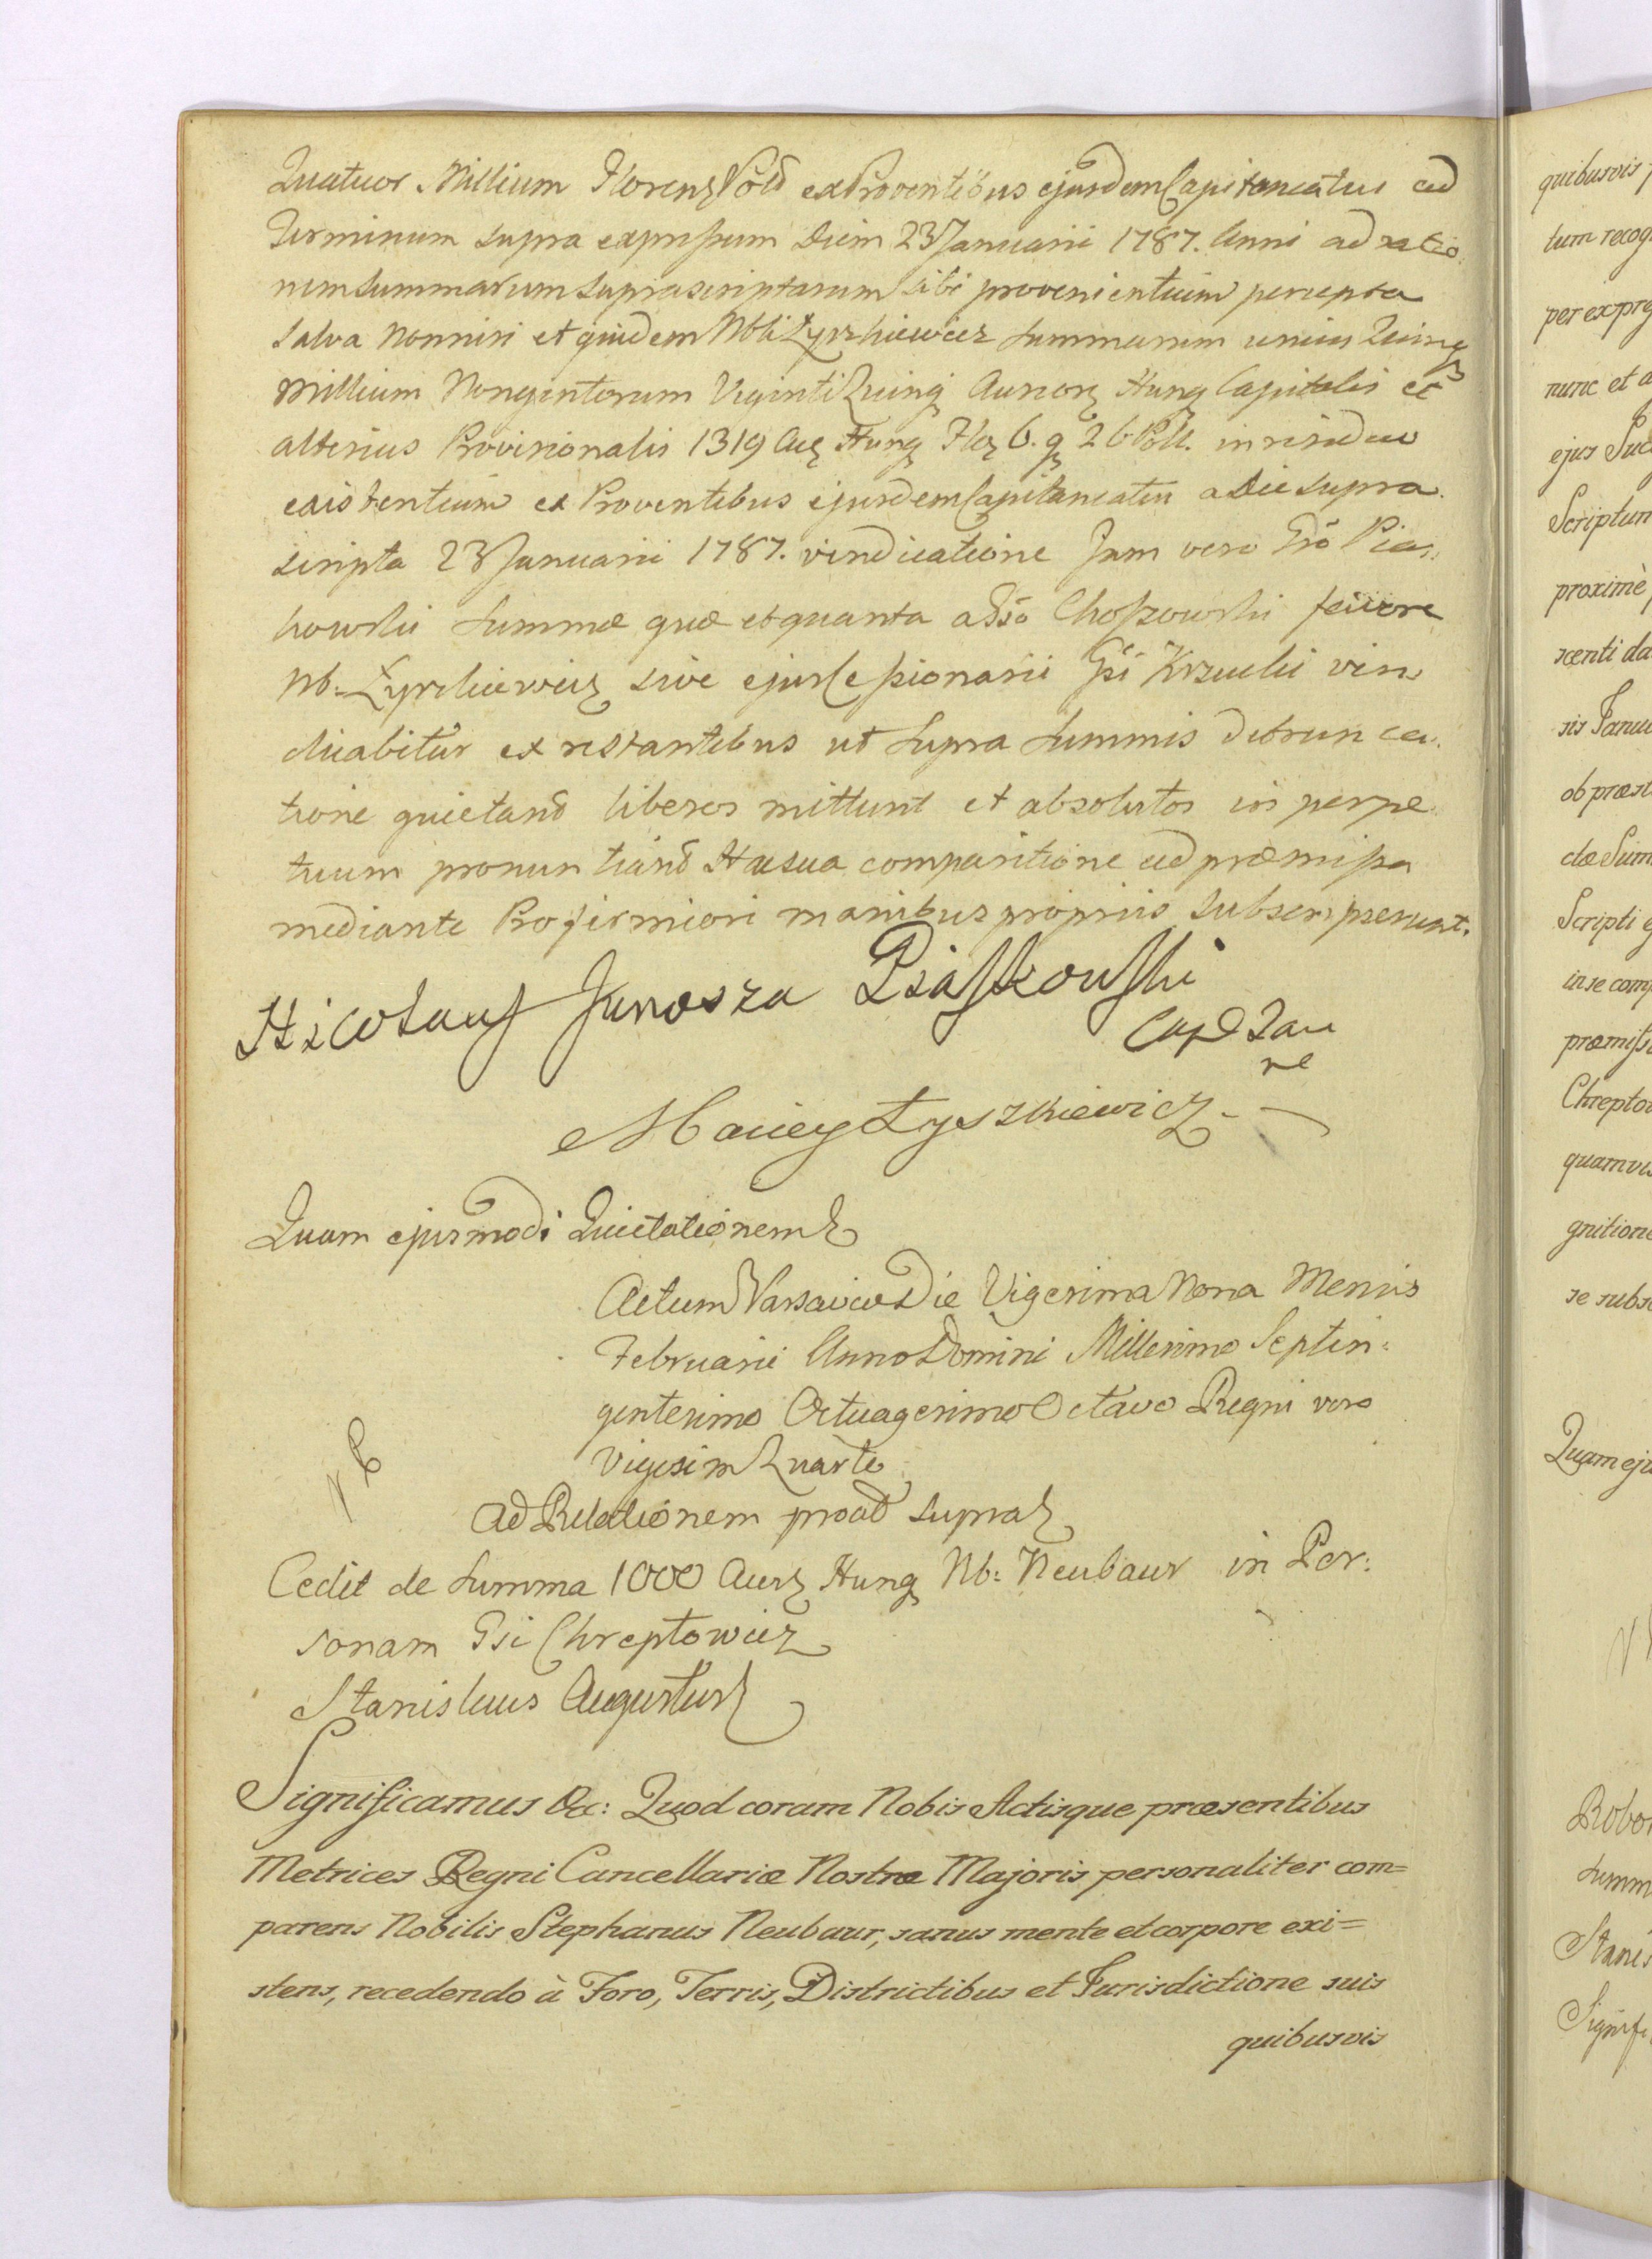 Quatuor Millium Florenz Poll ex Proventibus ejusdem Capitaneatus ad
Terminum supra expressum diem 23 Januarii 1787. Anni ad ratio
nem summarum suprascriptarum sibi provenientium percepta
salva nonnisi et quidem Nbli Łyszkiewicz summarum unius Quinq
Millium Nongentorum Viginti Quinq Aureorz Hung Capitalis et
alterius Provisionalis 1319 Aurz Hung Flor 6. gz 26 Poll. in residuo
existentium ex Proventibus ejusdem Capitaneatus a die supra
scripta 23 Januarii 1787. vindicatione Jam vero Gso Pias,
kowski summæ quæ et quanta a Gso Choszowski favore
Nb: Łyszkiewicz sive ejus Cessionarii Gsi Krzucki vin,
dicabitur ex restantibus ut supra summis detrunca,
tione quietand liberos mittunt et absolutos in perpe
tuum pronuntiand Hæ sua comparitione ad præmissa
mediante Pro firmiori manibus propriis subscripserunt.
Nicolaus Junosza Piaskowski
Cap Tau
ne
Maciey Łyszkiewicz
Quam ejusmodi Quietationem
Actum Varsaviæ Die Vigesima Nona Mensis
Februarii Anno Domini Millesimo Septin:
gentesimo Octuagesimo Octavo Regni vero
Vigesim Quarto
Ad Relationem proat supra
Cedit de summa 1000 Aurz Hung Nb: Neubaur in Per:
sonam Gsi Chreptowicz
Stanislaus Augustus
Significamus &c: Quod coram Nobis Actisque præsentibus
Metrices Regni Cancellariæ Nostræ Majoris personaliter com=
parens Nobilis Stephanus Neubaur, sanus mente et corpore exi=
stens, recedendo à Foro, Terris, Districtibus et Jurisdictione suis
quibusvis
quibusvis
tum recog
per expre
nunc et a
ejus Suc
Scriptum
proximè
scenti da
sis Janu
ob præst
dæ Sum
Scripti e
in se com
præmiss
Chrepto
quamvis
gnitione
se subs
Quam eju
Robo
summ
Stanis
Signif